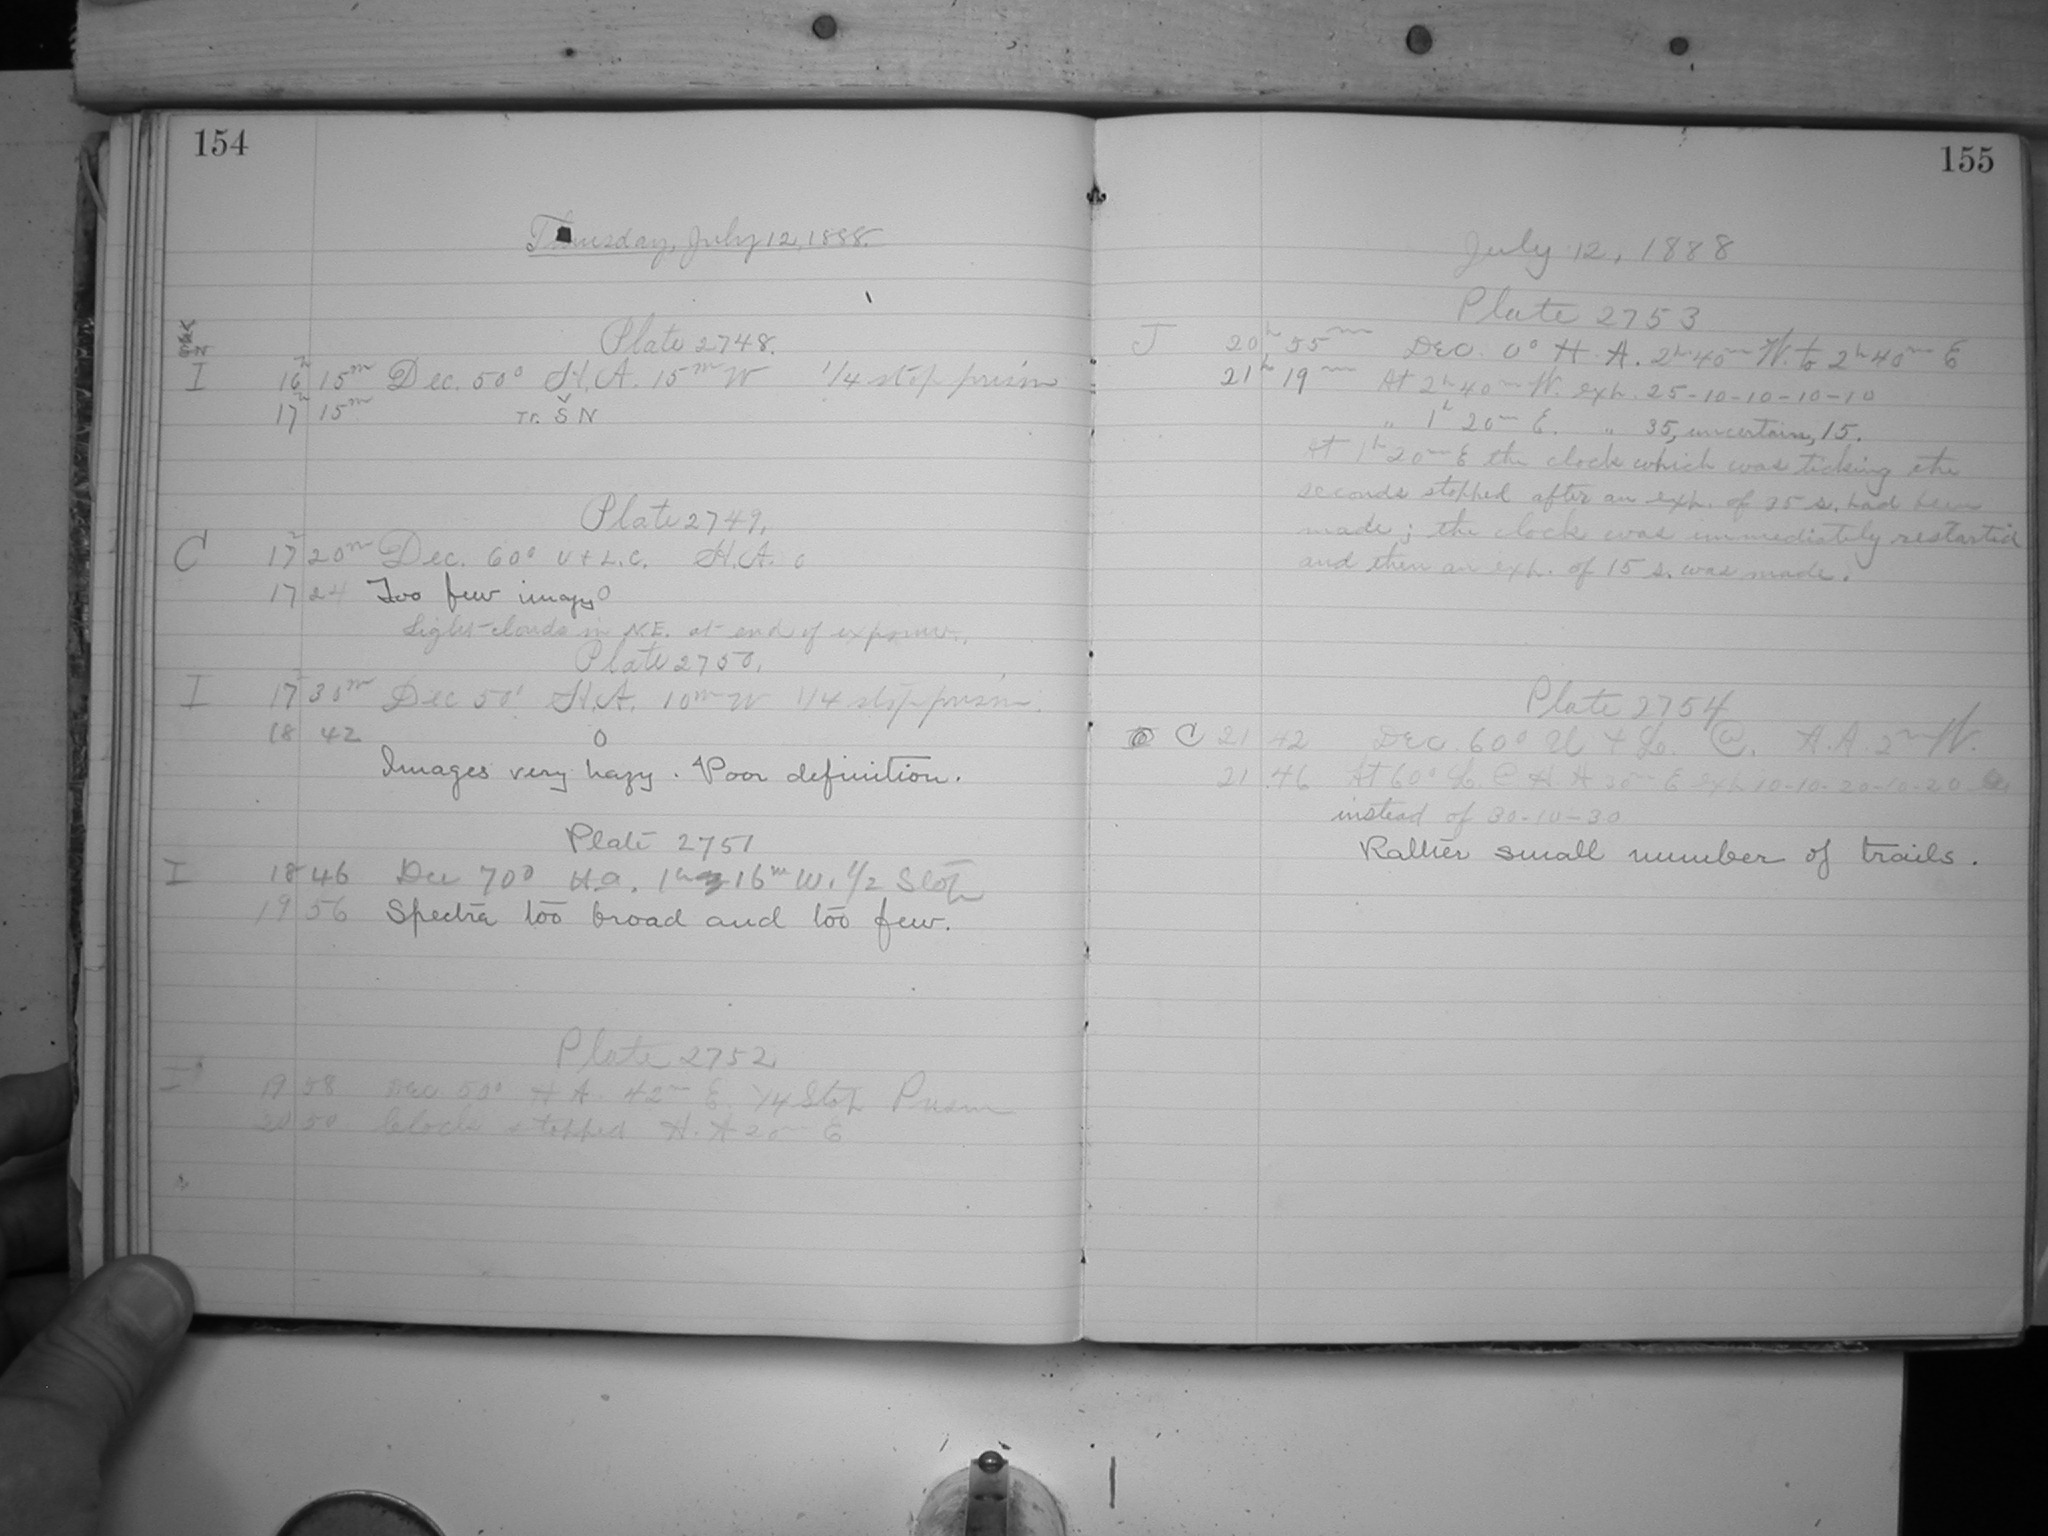 154
Thursday, July 12, 1888.
Plate 2748.
I 16h 15m Dec. 50° H.A. 15m W 1/4 stop prism
17h 15m Tr. S N
Plate 2749.
C 17 20m Dec. 60° U + L.C. H.A. 0
17 24 Too few images
Light clouds in N.E. at end of exposure.
Plate 2750.
I 17 30m Dec 50° H.A. 10m W 1/4 stop prism.
18 42
Images very hazy. Poor definition.
Plate 2751
I 18 46 Dec 70° H.A. 1h 16m W. 1/2 Stop
19 56 Spectra too broad and too few.
Plate 2752
I 19 58 Dec. 50° H A. 42m E. 1/4 Stop Prism
20 50 Clock stopped H.A 20m E
155
July 12, 1888
Plate 2753
J 20h 55m Dec. 0° H.A. 2h 40m W. to 2h 40m E
21h 19m At 2h 40m W. exp. 25-10-10-10-10
" 1h 20m E. " 35, uncertain, 15.
At 1h 20m E the clock which was ticking the
seconds stopped after an exp. of 35 s. had been
made; the clock was immediately restarted
and then an exp. of 15 s. was made.
Plate 2754
C 21 42 Dec. 60° U + L. C. H.A. 2m W.
21 46 At 60° L. C H.A 30m E exp 10-10-20-10-20
instead of 30-10-30
Rather small number of trails.